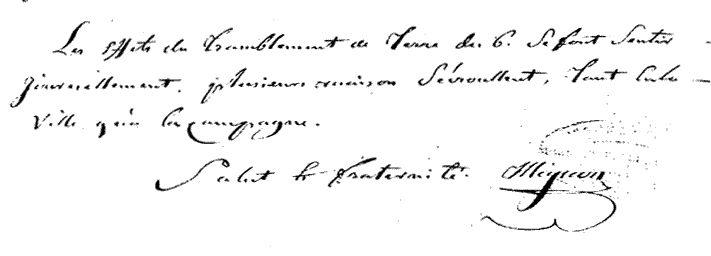 Les effets du tremblement de Terre du 6. Se font Sentir
Journellement. plusieurs maison Sécroullent, tant en la
Ville qu'a la campagne.
Salut & fraternité.